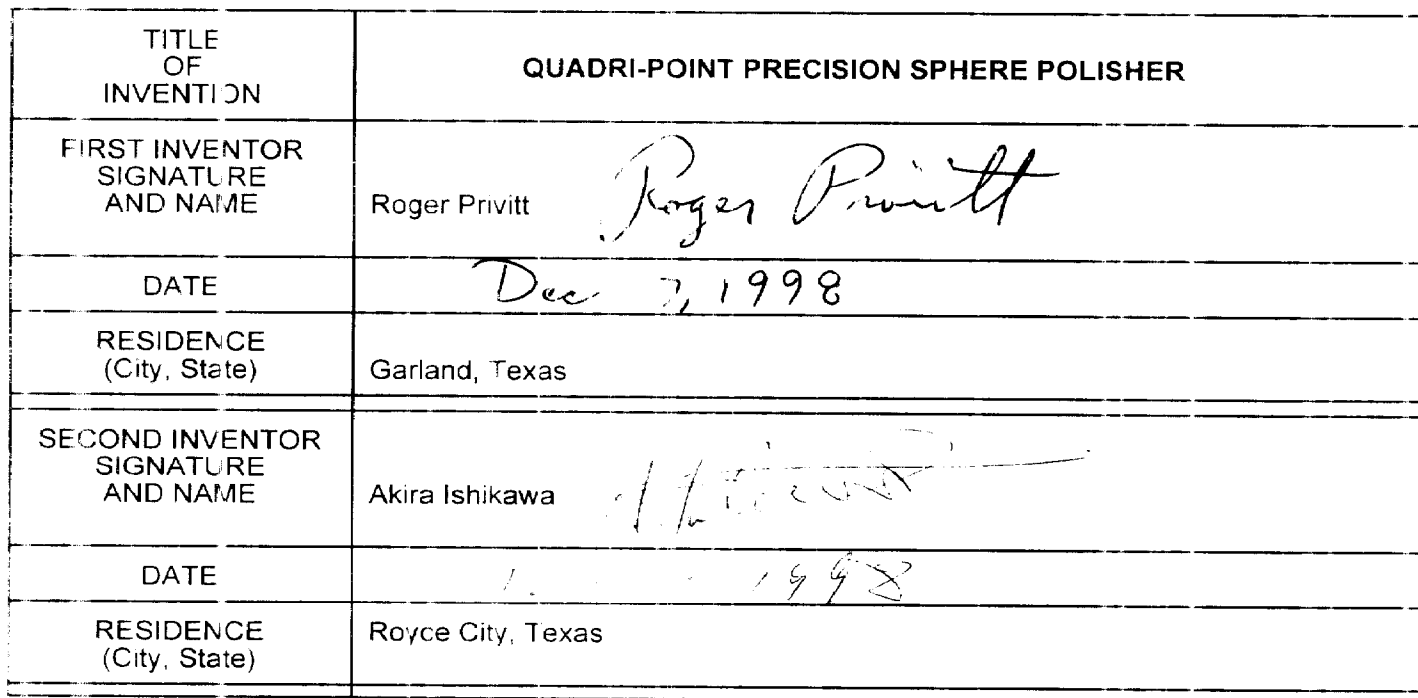 TITLE
OF
INVENTION
QUADRI-POINT PRECISION SPHERE POLISHER
FIRST INVENTOR
SIGNATURE
AND NAME
Roger Privitt Roger Privitt
DATE
Dec 7, 1998
RESIDENCE
(City, State)
Garland, Texas
SECOND INVENTOR
SIGNATURE
AND NAME
Akira Ishikawa
DATE
1998
RESIDENCE
(City, State)
Royce City, Texas